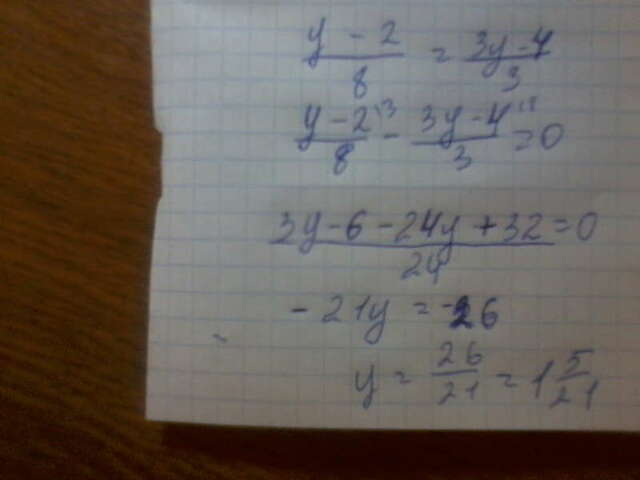 y - 2 / 8 = 3y - 4 / 3
y - 2 / 8 - 3y - 4 / 3 = 0
3y - 6 - 24y + 32 / 24 = 0
- 21y = -26
y = 26 / 21 = 1 5/21